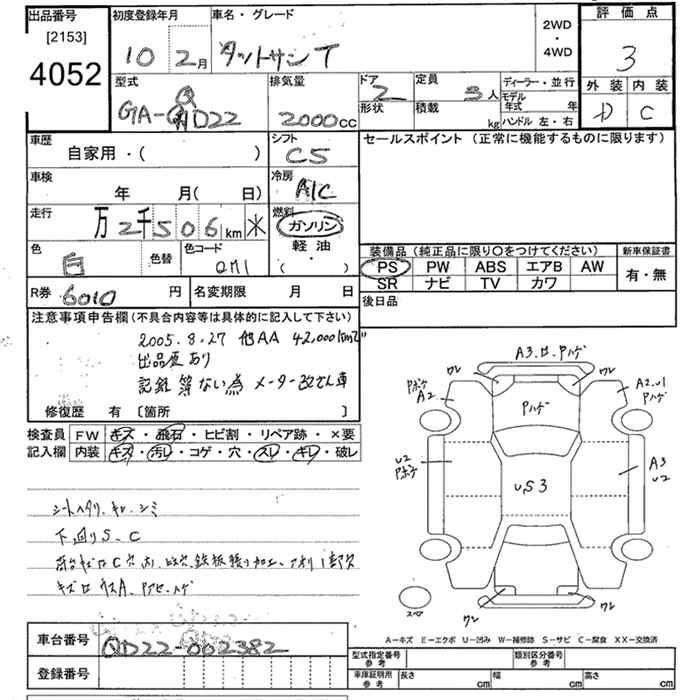 出品番号
[2153]
4052
初度登録年月
10 2月
車名・グレード
ダットサン T
2WD
・
4WD
評価点
3
外装 内装
D C
型式
GA-QD22
排気量
2000cc
ドア
2
形状
定員
3人
積載
kg
ディーラー・並行
モデル
年式 年
ハンドル 左・右
車歴
自家用・( )
シフト
C5
車検
年 月( 日)
冷房
A/C
走行
万2千506km
燃料
ガソリン
軽油
( ・ )
色
白
色替
色コード
R券
6010 円
名変期限 月 日
セールスポイント (正常に機能するものに限ります)
装備品 (純正品に限り○をつけてください)
PS PW ABS エアB AW
SR ナビ TV カワ
新車保証書
有・無
後日品
注意事項申告欄(不具合内容等は具体的に記入して下さい)
2005.8.27 他AA 42,000km
出品歴あり
記録簿ない為 メーター改ざん車
修復歴 有 [箇所 ]
検査員 FW キズ・飛石・ヒビ割・リペア跡・×要
記入欄 内装 キズ・汚レ・コゲ・穴・スレ・キレ・破レ
下回りS.C
A3.
ワレ ワレ
A2
A2.U1
U2
U,S3
A3
U2
ワレ ワレ
A-キズ E-エクボ U-凹み W-補修跡 S-サビ C-腐食 XX-交換済
車台番号 QD22-002382
登録番号
型式指定番号
参考
類別区分番号
参考
車庫証明用
参考
長さ cm 幅 cm 高さ cm